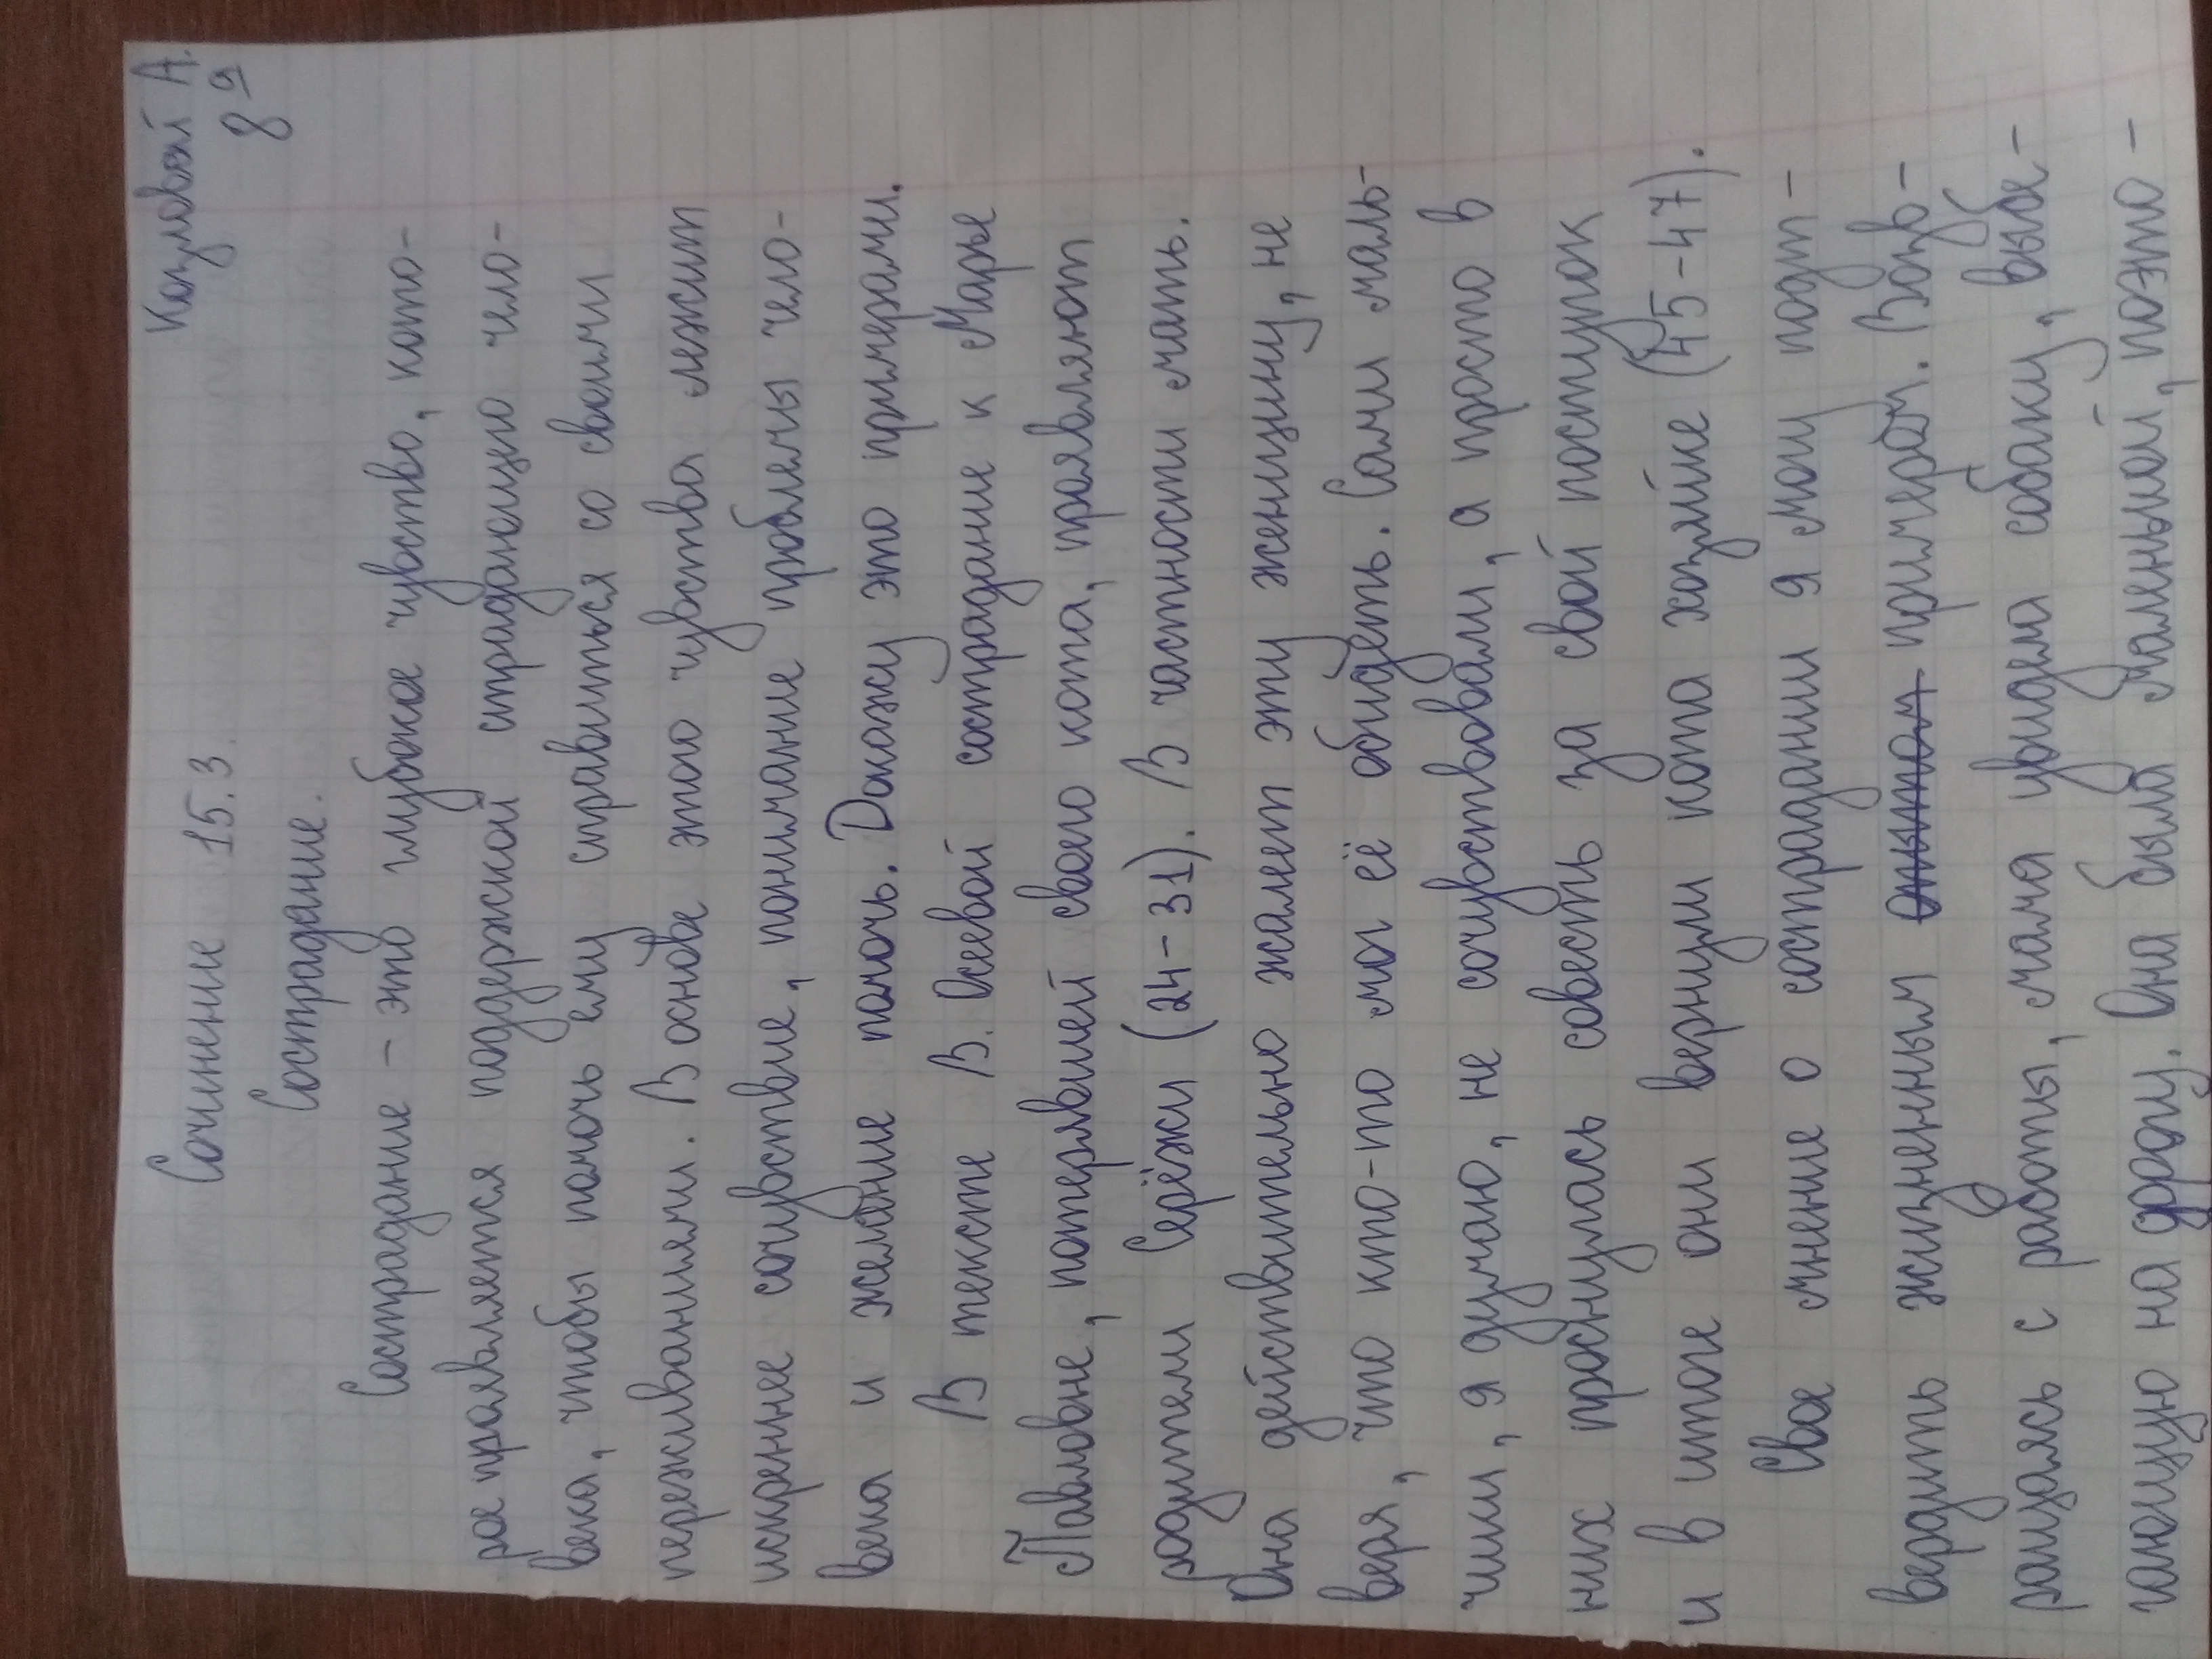 Козловой А.
8 а
Сочинение 15.3.
Сострадание.
Сострадание - это глубокое чувство, кото-
рое проявляется подержской страдающего чело-
века, чтобы помочь ему справиться со своими
переживаниями. В основе этого чувства лежит
искреннее сочуствие, понимание проблемы чело-
века и желание помочь. Докажу это примерами.
В тексте В. Осеевой сострадание к Марье
Павловне, потерявшей своего кота, проявляют
родители Серёжи (24-31). В частности мать.
Она действительно жалеет эту женщину, не
веря, что кто-то мог её обидеть. Сами маль-
чики, я думаю, не сочуствовали, а просто в
них проснулась совесть за свой поступок
и в итоге они вернули кота хозяйке (45-47).
Свое мнение о сострадании я могу подт-
вердить жизненным опытом примером. Возв-
ращаясь с работы, мама увидела собаку, выбе-
гающую на дорогу. Она была маленькой, поэто-